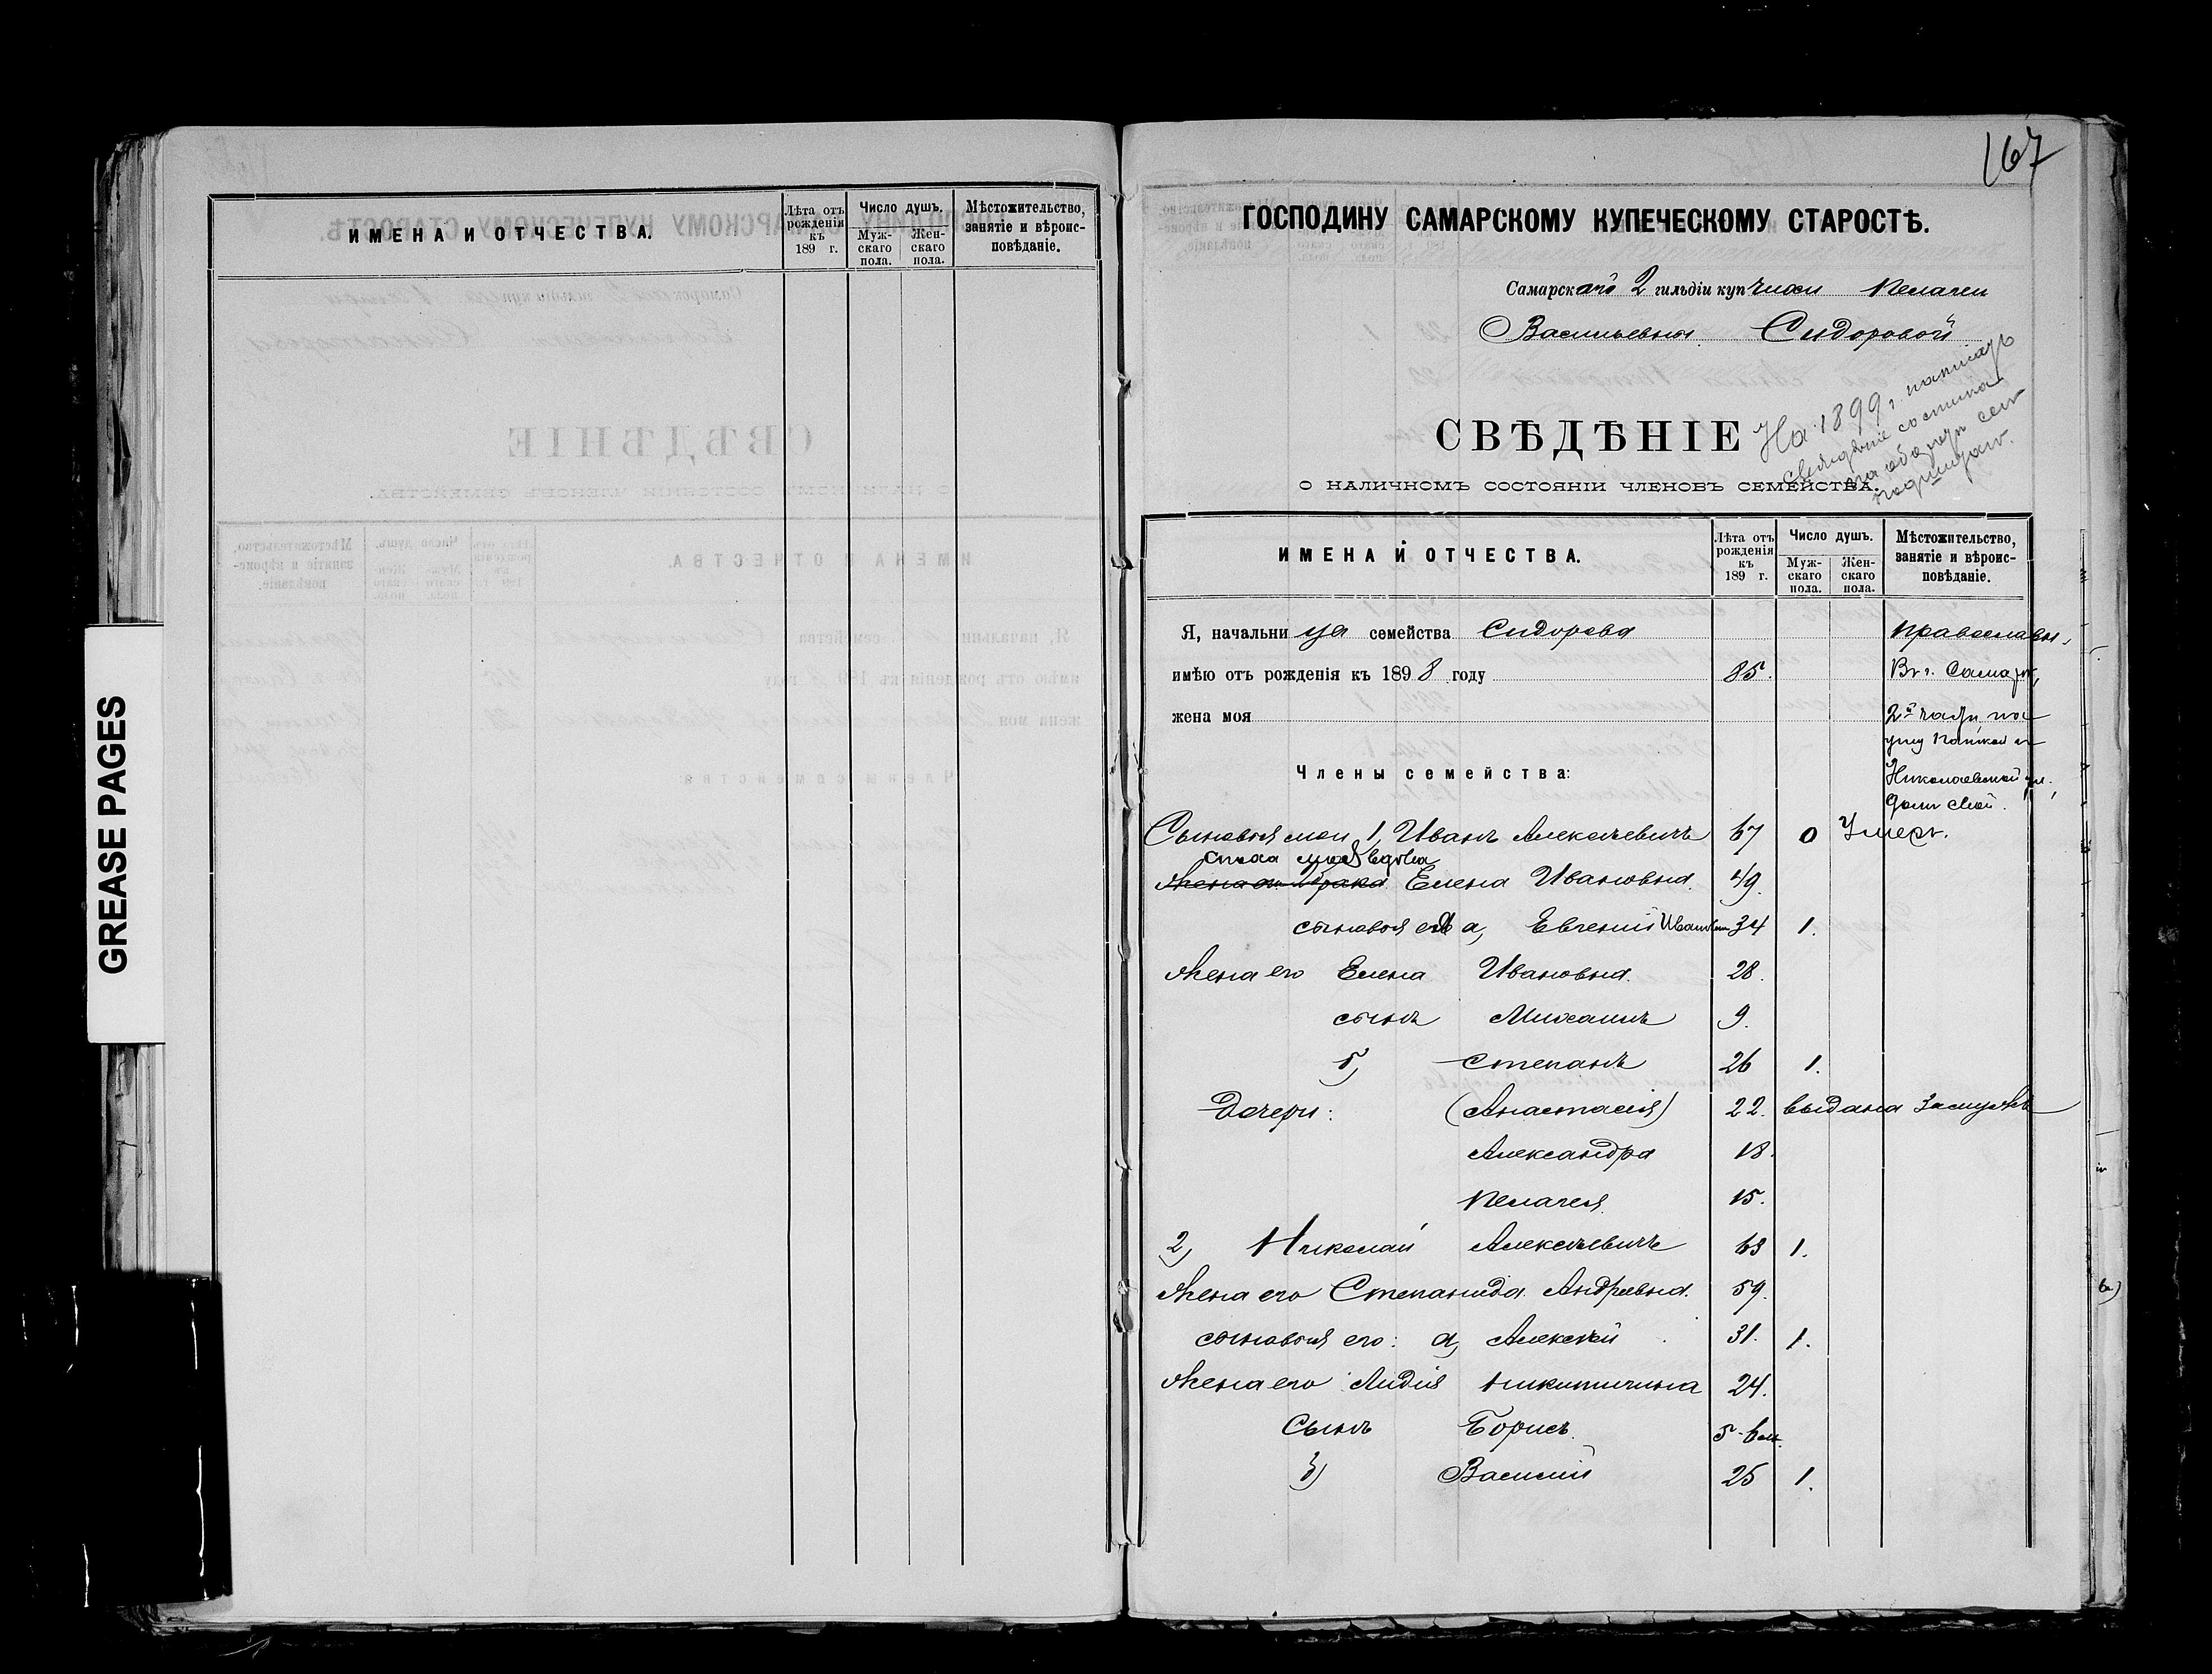 ИМЕНА И ОТЧЕСТВА.
Лѣта отъ рожденія къ 189 г.
Число душъ.
Муж-скаго пола.
Жен-скаго пола.
Мѣстожительство, занятіе и вѣроис-повѣданіе.
GREASE PAGES
167
ГОСПОДИНУ САМАРСКОМУ КУПЕЧЕСКОМУ СТАРОСТѢ.
Самарскаго 2 гильдіи купчихи Пелагеи
Васильевны Сидоровой
СВѢДѢНІЕ
На 1899 г.
о наличномъ состояніи членовъ семейства.
ИМЕНА И ОТЧЕСТВА.
Лѣта отъ рожденія къ 189 г.
Число душъ.
Муж-скаго пола.
Жен-скаго пола.
Мѣстожительство, занятіе и вѣроис-повѣданіе.
Я, начальница семейства Сидорова
имѣю отъ рожденія къ 1898 году 85.
жена моя
Въ г. Самарѣ,
2й части по
Николаевской ул.
домъ свой.
Члены семейства:
Сыновья мои 1, Иванъ Алексѣевичъ 67 0 Умеръ.
вдова
Елена Ивановна. 49.
сыновья а, Евгений 34 1.
Жена его Елена Ивановна. 28.
сынъ Михаилъ 9.
б, Степанъ 26 1.
Дочери: (Анастасія) 22. выдана замужъ
Александра 18.
Пелагея. 15.
2, Николай Алексѣевичъ 63 1.
Жена его Степанида Андреевна. 59.
сыновья его: а, Алексѣй 31. 1.
Жена его Лидія Никитична 24.
Сынъ Борисъ. 5
б) Василий 25 1.